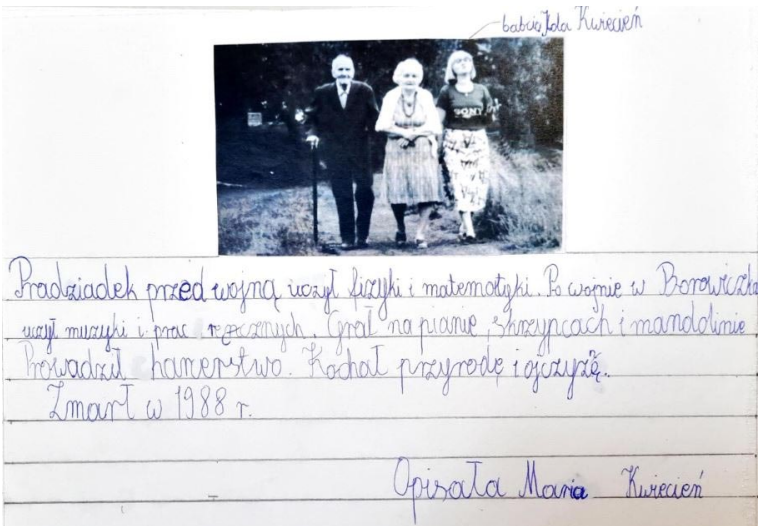 babcia Jola Kwiecień
SONY
Pradziadek przed wojną uczył fizyki i matematyki. Po wojnie w Borowiczka
uczył muzyki i prac ręcznych. Grał na pianie, skrzypcach i mandolinie
Prowadził harcerstwo. Kochał przyrodę i ojczyzę.
Zmarł w 1988 r.
Opisała Maria Kwiecień